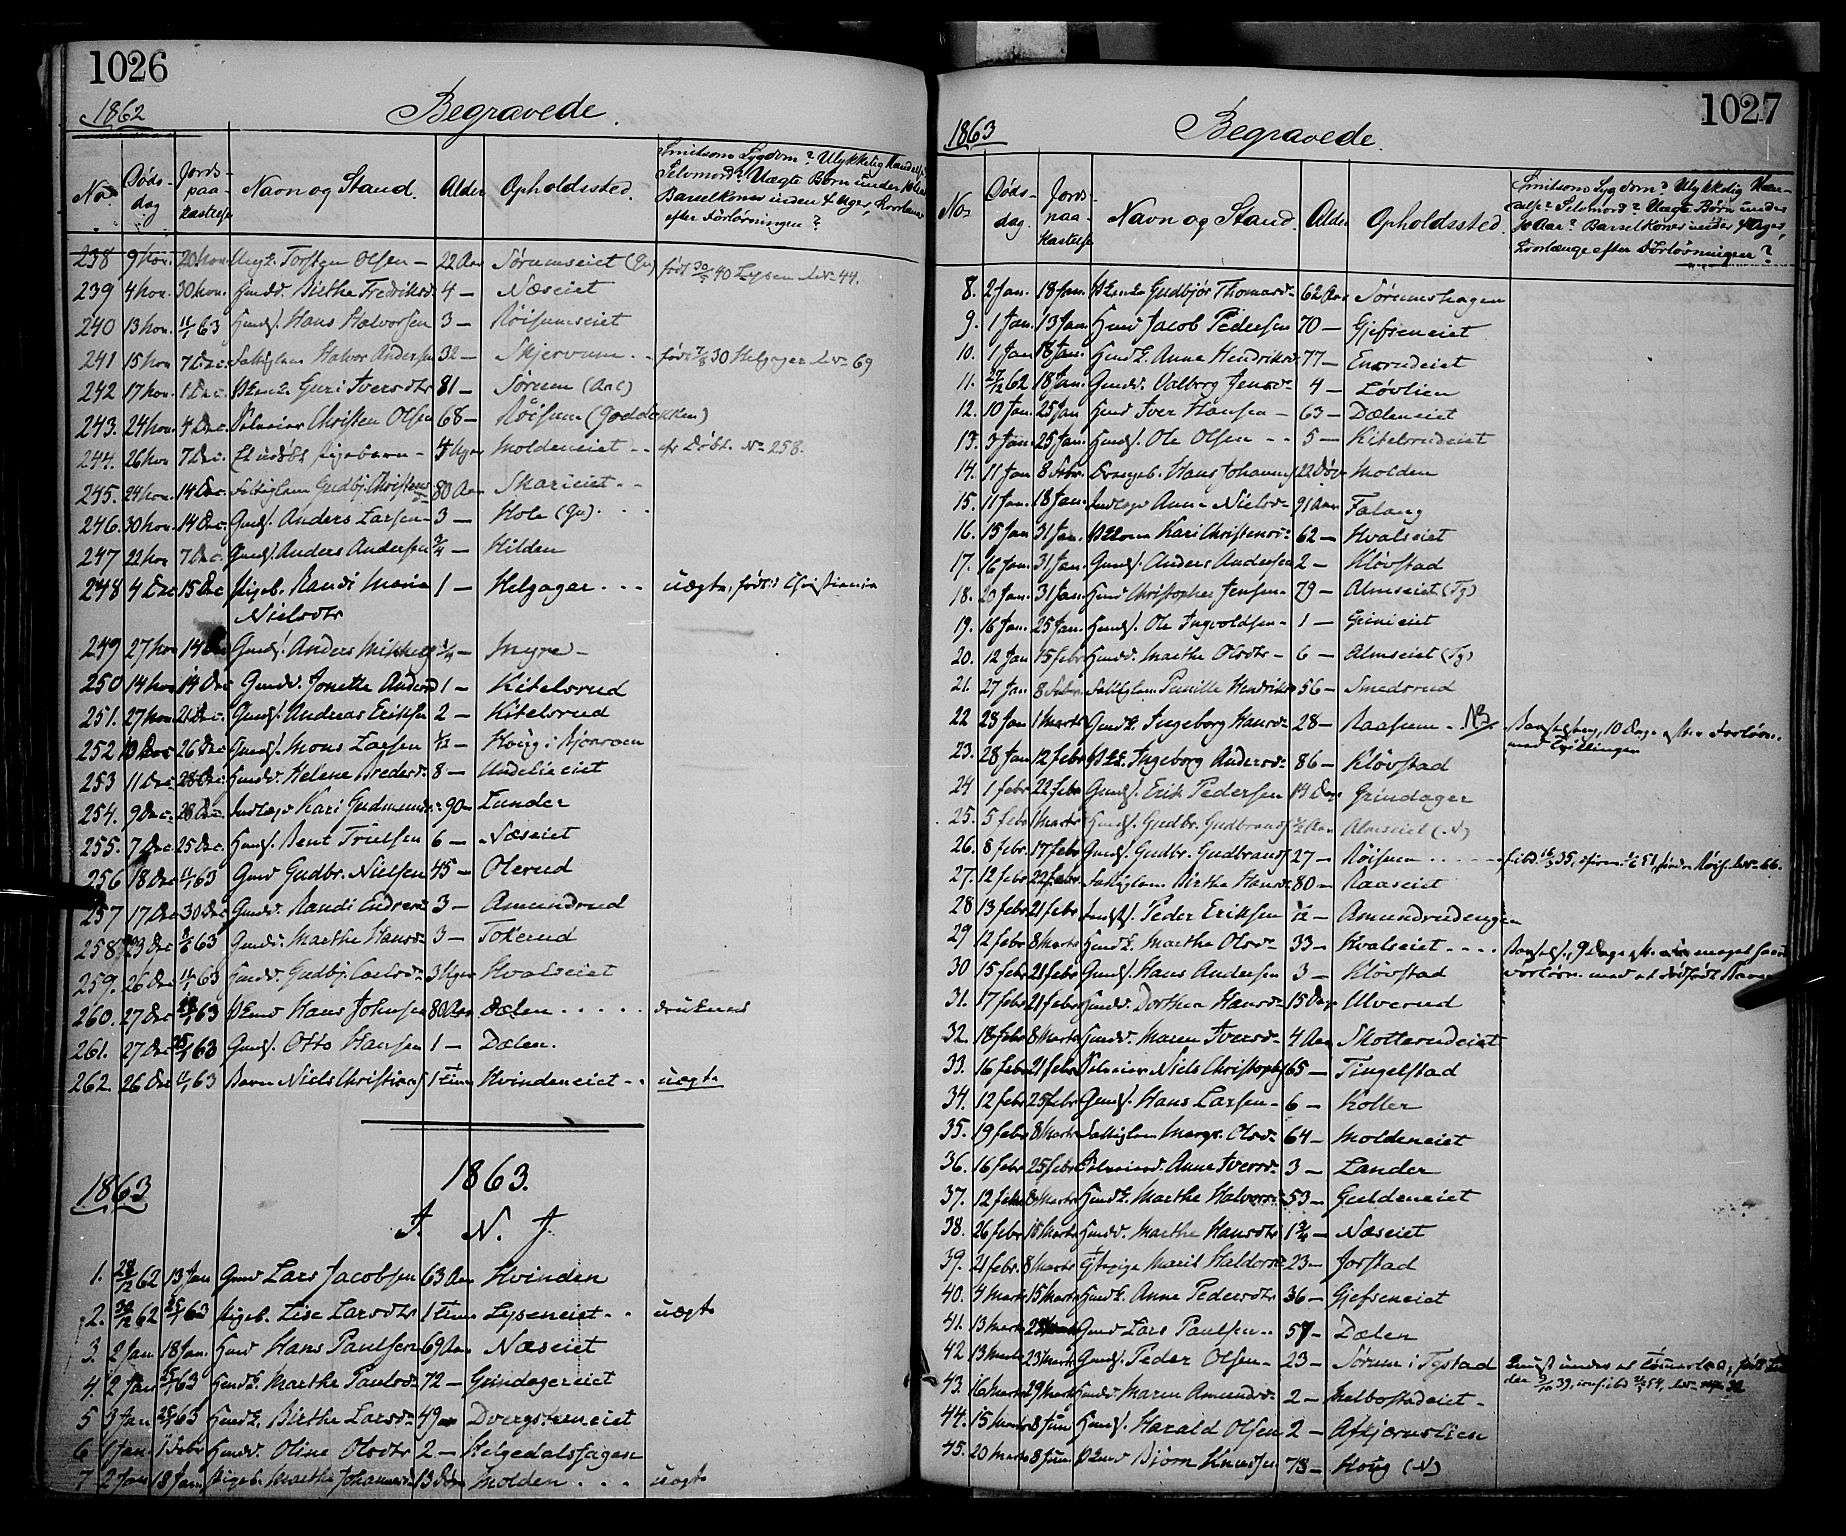 1026
1862
Begravede.
No
Døds-
dag
Jords-
paa-
kastelse
Navn og Stand.
Alder
Opholdssted.
Smitsom Sygdom? Ulykkelig Hændelse?
Selvmord? Uægte Børn under 10 Aar
Barselkoner inden 4 Uger, hvorlænge
efter Forløsningen?
238 9 Nov. 20 Nov. Ungk. Torsten Olsen - 22 Aar Sørumseiet (Gr) født 40 Lysen No 44.
239 4 Nov. 30 Nov. Husmd. Birthe Fredriksd. 4 - Næseiet
240 13 Nov. 11/1 63 Husms. Hans Halvorsen 3 - Røisumseiet
241 15 Nov 7 Dec. Fattiglem Halvor Andersen 32 - Skjervum - født 30 Helgager No 69
242 17 Nov. 1 Dec. Guri Iversdtr 81 - Sørum (Aal)
243. 24 Nov. 4 Dec. Pleieier Christen Olsen 68 - Røisum (Goddakken)
244. 26 Nov 7 Dec. Et udøbt Pigebarn - 4 Uger Moldeneiet - cfr Døbt. No 258.
245. 24 Nov. 14 Dec. Fattiglem Gudbj. Christensd. 80 Aar Skarieiet -
246. 30 Nov. 14 Dec. Gmds. Anders Larsen - 3 - Hole (Gr).
247 22 Nov 7 Dec. Gmds. Anders Andersen 3/4 - Hilden
248 4 Dec 15 Dec Pigeb. Randi Marie 1 - Helgager - - - uægte, født i Christiania
Nielsdtr
249 27 Nov 14 Dec Gmds. Anders Mikkels 1/4 - Myre -
250 14 Nov 14 Dec Gmdd. Jonette Andersd 1 - Kitelsrud
251. 27 Nov 21 Dec. Gmds. Andreas Eriksen 2 - Kitelsrud
252 10 Dec 26 Dec Gmds. Mons Larsen 1/2 - Houg i Bjonroen
253 11 Dec. 28 Dec. Husmd. Helene Pedersd. 8 - Undelieeiet
254. 9 Dec. 28 Dec. Indlagd Kari Gudmundsd. 90 - Lunder
255. 7 Dec. 25 Dec. Husms. Bent Trulsen 6 - Næseiet
256 18 Dec 11/1 63 Gmd Gudbr. Nielsen 45 - Olerud
257 17 Dec 30 Dec Gmdd. Randi Endresd 3 - Amundrud
258 23 Dec 63 Gmdd. Marthe Hansd. 3 - Tokerud
259. 26 Dec 11/1 63 Husmd. Gudbj. Carlsd. 3 Uger Hvalseiet
260. 27 Dec 63 Hans Johnsen 80 Aar Dælen . . . . . druknet
261. 27 Dec 25/1 63 Gmds. Otto Hansen 1 - Dælen.
262. 26 Dec 11/1 63 Barn Niels Christians 1 Time Hvindeneiet - - uægte
1863
1863.
I. N. J.
1. 28/12 62 13 Jan Gmd Lars Jacobsen 63 Aar Hvinden
2. 30/12 62 25/1 63 Pigeb. Lise Larsdtr 1 Time Lyseneiet - - uægte
3. 2 Jan 18 Jan. Husmd Hans Paulsen 69 Aar Næseiet
4. 2 Jan 25/1 63 Husmdk. Marthe Paulsd. 72 - Grindagereiet
5 3 Jan 25/1 63 Husmk. Birthe Larsd. 49 Dvergsteneiet
6 1 Jan. 1 Febr Husmd. Oline Olsdtr 2 - Helgedalshagen
7 2 Jan 18 Jan. Pigeb. Marthe Johannesd. 13 Døgn Molden - . . uægte
1027
1863
Begravede.
No
Døds-
dag.
Jords-
paa-
kastelse
Navn og Stand.
Alder
Opholdssted.
Smitsom Sygdom? Ulykkelig Hæn-
delse? Selvmord? Uægte Børn under
10 Aar? Barselkoner inden 4 Uger,
hvorlænge efter Forløsningen?
8. 2 Jan. 18 Jan. Gudbjør Thomasd. 62 Aar Sørumshagen
9. 1 Jan. 13 Jan. Husmd Jacob Pedersen 70 - Gjefseneiet
10. 1 Jan 18 Jan. Husmdk. Anne Hendriksd. 77 - Enerudeiet
11. 27/12 62 18 Jan. Gmdd. Valborg Jensd. 4 - Løvlien
12. 10 Jan. 25 Jan Husmd Iver Hansen - 63 - Dæleneiet
13. 3 Jan. 25 Jan. Husms. Ole Olsen - - 5 - Kitelsrudeiet
14. 11 Jan 8 Febr. Drengeb. Hans Johannes 22 Døgn Molden
15. 11 Jan 18 Jan. Indlagd Anne Nielsd. 91 Aar Falang
16. 15 Jan 31 Jan. Kari Christensd. 62 - Hvalseiet
17. 16 Jan. 31 Jan. Gmds. Anders Andersen 2 - Kløvstad
18. 20 Jan. 31 Jan. Husmd Christopher Jensen - 79 - Almseiet (Tg)
19. 16 Jan. 25 Jan. Husms. Ole Ingvoldsen - 1 - Grinieiet
20. 12 Jan 15 Febr Husmd. Marthe Olsdtr - 6 - Almseiet (Tg)
21. 27 Jan 8 Febr. Fattiglem Pernille Hendriksd 56 - Smedsrud
22 28 Jan 1 Marts Gmdk. Ingeborg Hansd. 28 - Raasum - NB Barselseng, 10 Dage efter Forløsn.
med Tvillinger
23. 28 Jan 12 Febr Ingeborg Andersd. 86 - Kløvstad
24 1 Febr 22 Febr Gmds. Erik Pedersen 14 Dage Grindager
25. 5 Febr 1 Marts Husms. Gudbr. Gudbrands 1/2 Aar Almseiet (N)
26. 8 Febr. 17 Febr Gmds. Gudbr. Gudbrands 27 - Røisum . . . . . født 35, confirm. 51, No 66.
27. 12 Febr 22 Febr Fattiglem Birthe Hansd. 80 - Raaseiet
28 13 Febr. 21 Febr Husms. Peder Eriksen 1/12 - Amundrudengen
29 12 Febr 8 Marts Husmdk. Marthe Olsd. 33 - Hvalseiet . . . . Barsels., 9 Dage efter en meget haard
Forløsn. med et dødfødt Barn
30 15 Febr 21 Febr Gmds. Hans Andersen 3 - Kløvstad
31. 17 Febr 21 Febr Gmdd. Dorthea Hansd. 15 Dage Ulverud
32. 18 Febr 8 Marts Husmd. Maren Iversd. 4 Aar Skotterudeiet
33. 16 Febr 21 Febr Pleieier Niels Christophs 65 - Tingelstad
34. 12 Febr 25 Febr Gmds. Hans Larsen - 6 - Koller
35. 19 Febr 8 Marts Fattiglem Margr. Olsd. 64 - Moldeneiet
36. 16 Febr 25 Febr Anne Iversd. 3 - Lander
37. 12 Febr 8 Marts Husmdk. Marthe Halvorsd. 53 - Guldeneiet
38. 26 Febr 15 Marts Husmd. Marthe Hansdtr 1 3/4 - Næseiet
39. 21 Febr. 8 Marts Pige Marit Haldorsd. 23 - Jorstad
40. 4 Marts 15 Marts Husmdk. Anne Pedersdtr 36 - Gjefseneiet
41. 13 Marts Gmd Lars Paulsen - 57 - Dælen
42 13 Marts 23 Marts Gmds. Peder Olsen - 23 - Sørum i Tgstad født
39, confirm 54,
43. 16 Marts 29 Marts Husmd. Maren Amundsd. 2 - Melbostadeiet -
44. 15 Marts 8 Juni Husms. Harald Olsen 2 - Askjernslien
45. 20 Marts 8 Juni Bjørn Knudsen 78 - Houg (N)